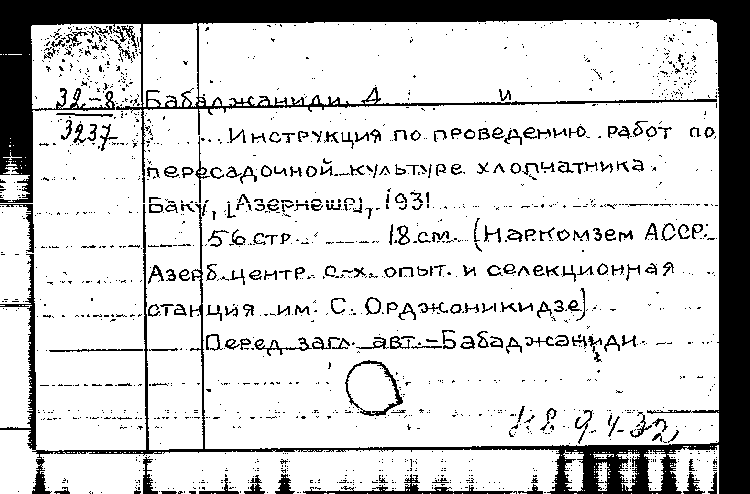 32-8 Бабаджаниди, Д и
3237 ... Инструкция по проведению работ по
пересадочной культуре хлопчатника.
Баку, [Азернешр], 1931
56 стр. 18 см. (Наркомзем АССР.
Азерб. центр. с-х. опыт. и селекционная
станция им. С. Орджоникидзе)
Перед загл. авт.-Бабаджаниди
9-4-32